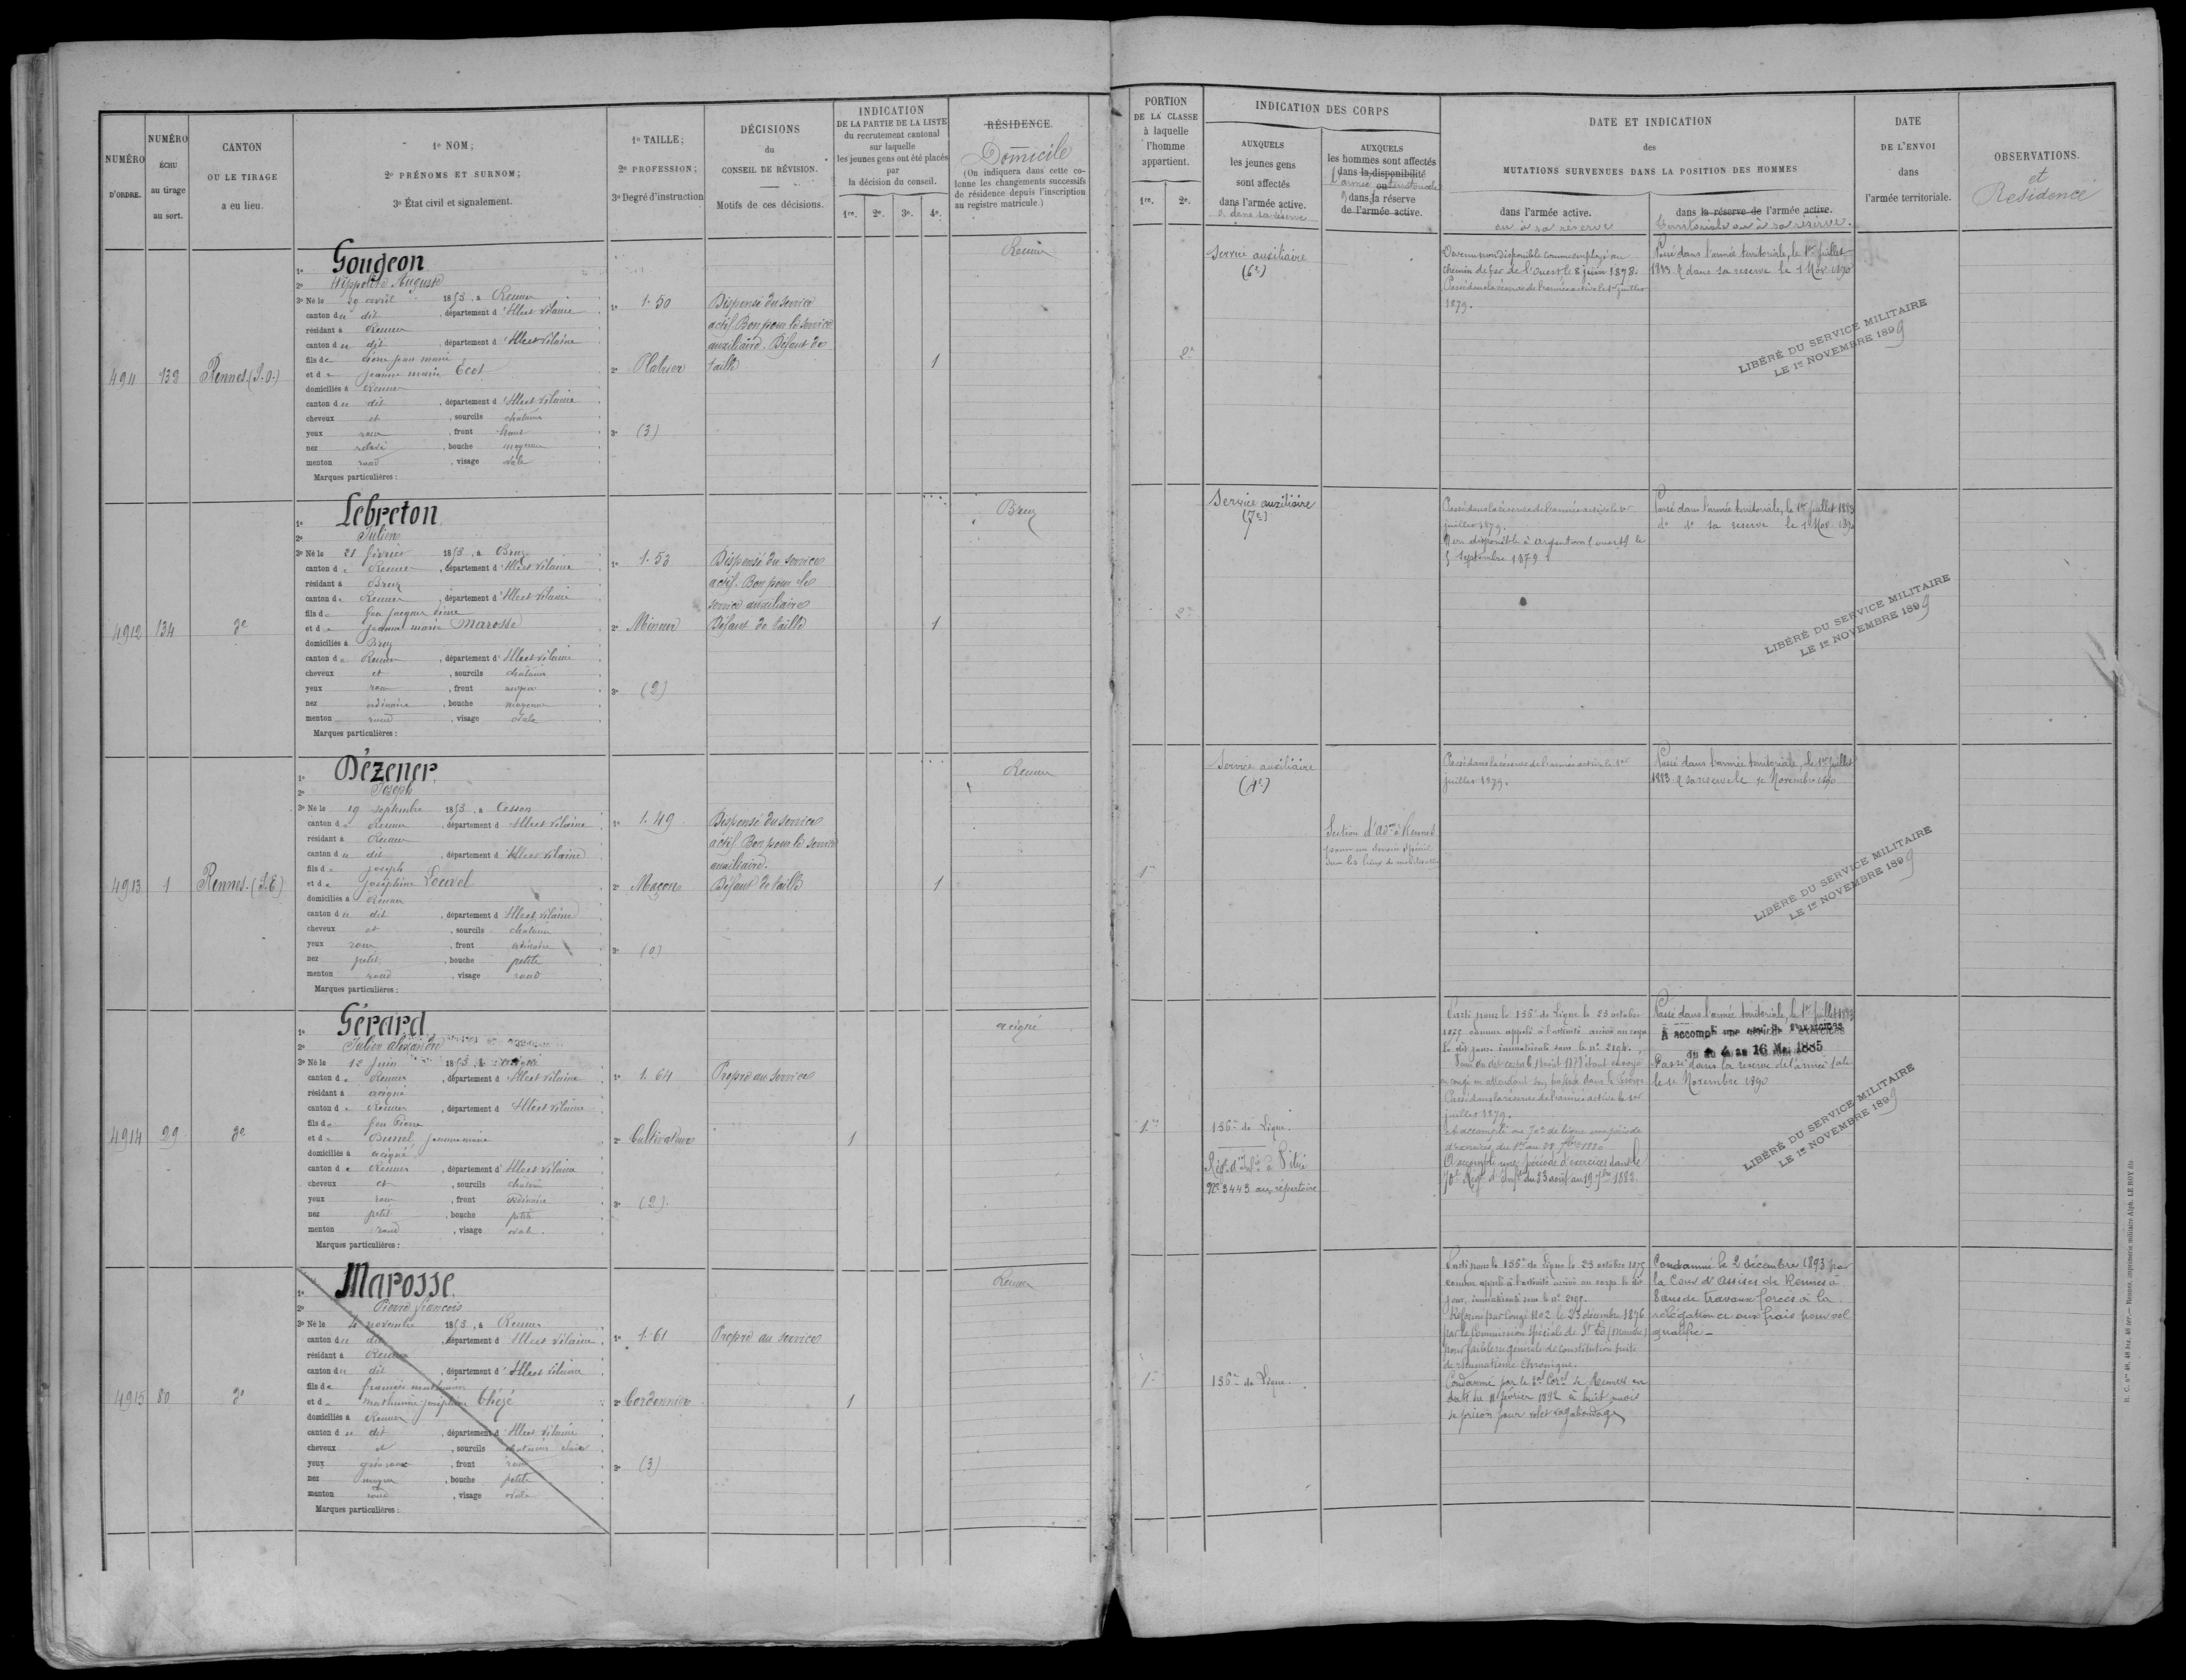 NUMÉRO
D'ORDRE.
NUMÉRO
ÉCHU
au tirage
au sort.
CANTON
OU LE TIRAGE
a eu lieu.
1º NOM;
2º PRÉNOMS ET SURNOM;
3º État civil et signalement.
1º TAILLE;
2º PROFESSION;
3º Degré d'instruction
DÉCISIONS
du
CONSEIL DE RÉVISION.
Motifs de ces décisions.
INDICATION
DE LA PARTIE DE LA LISTE
du recrutement cantonal
sur laquelle
les jeunes gens ont été placés
par
la décision du conseil.
1re. 2e. 3e. 4e.
RÉSIDENCE.
Domicile
(On indiquera dans cette colonne
les changements successifs
de résidence depuis l'inscription
au registre matricule.)
PORTION
DE LA CLASSE
à laquelle
l'homme
appartient.
1re. 2e.
INDICATION DES CORPS
AUXQUELS
les jeunes gens
sont affectés
dans l'armée active.
& dans sa réserve
AUXQUELS
les hommes sont affectés
dans la disponibilité
l'armée ou territoriale
& dans la réserve
de l'armée active.
DATE ET INDICATION
des
MUTATIONS SURVENUES DANS LA POSITION DES HOMMES
dans l'armée active.
ou à sa réserve
dans la réserve de l'armée active.
territoriale ou à sa réserve.
DATE
DE L'ENVOI
dans
l'armée territoriale.
OBSERVATIONS.
et
Résidence
4911 133 Rennes (S.O.)
1º Gougeon
2º Hippolite Auguste
3º Né le 29 avril 1853, à Rennes
canton du dit, département d'Ille et Vilaine
résidant à Rennes
canton du dit, département d'Ille et Vilaine
fils de Pierre jean marie
et de jeanne marie Ecot
domiciliés à Rennes
canton du dit, département d'Ille et Vilaine
cheveux et, sourcils châtains
yeux roux, front haut
nez relevé, bouche moyenne
menton rond, visage ovale
Marques particulières :
1º 1.50
2º Platrier
3º (3)
Dispensé du service
actif. Bon pour le service
auxiliaire. Défaut de
taille
1
Rennes
2e
Service auxiliaire
(6e)
Devenu non disponible comme employé au
chemin de fer de l'Ouest le 8 juin 1878.
Passé dans la réserve de l'armée active le 1er juillet
1879.
Passé dans l'armée territoriale, le 1er juillet
1883 & dans sa réserve le 1 Nov. 1890
LIBÉRÉ DU SERVICE MILITAIRE
LE 1er NOVEMBRE 1899
4912 134 do
1º Lebreton
2º Julien
3º Né le 21 février 1853, à Bruz
canton de Rennes, département d'Ille et Vilaine
résidant à Bruz
canton de Rennes, département d'Ille et Vilaine
fils de feu Jacques Pierre
et de jeanne marie Marosse
domiciliés à Bruz
canton de Rennes, département d'Ille et Vilaine
cheveux et, sourcils châtains
yeux roux, front moyen
nez ordinaire, bouche moyenne
menton rond, visage ovale
Marques particulières :
1º 1.53
2º Mineur
3º (2)
Dispensé du service
actif. Bon pour le
service auxiliaire
Défaut de taille
1
Bruz
2e
Service auxiliaire
(7e)
Passé dans la réserve de l'armée active le 1er
juillet 1879.
Non disponible à Argentan (ouest) le
5 Septembre 1879.
Passé dans l'armée territoriale, le 1er juillet 1883
do do sa réserve le 1 Nov 1890
LIBÉRÉ DU SERVICE MILITAIRE
LE 1er NOVEMBRE 1899
4913 1 Rennes. (S.E.)
1º Dézener
2º Joseph
3º Né le 19 septembre 1853, à Cesson
canton de Rennes, département d'Ille et Vilaine
résidant à Rennes
canton du dit, département d'Ille et Vilaine
fils de joseph
et de joséphine Louvel
domiciliés à Rennes
canton du dit, département d'Ille et Vilaine
cheveux et, sourcils châtains
yeux roux, front ordinaire
nez petit, bouche petite
menton rond, visage rond
Marques particulières :
1º 1.49
2º Maçon
3º (0)
Dispensé du service
actif. Bon pour le service
auxiliaire.
Défaut de taille
1
Rennes
1re
Service auxiliaire
(4e)
Section d'adon à Rennes
pour un service spécial
Passé dans la réserve de l'armée active le 1er
juillet 1879.
Passé dans l'armée territoriale, le 1er juillet
1883 & sa réserve le 1e Novembre 1890
LIBÉRÉ DU SERVICE MILITAIRE
LE 1er NOVEMBRE 1899
4914 29 do
1º Gérard
2º Julien alexandre
3º Né le 12 Juin 1853, à acigné
canton de Rennes, département d'Ille et Vilaine
résidant à acigné
canton de Rennes, département d'Ille et Vilaine
fils de feu Pierre
et de Dunel, jeanne marie
domiciliés à acigné
canton de Rennes, département d'Ille et Vilaine
cheveux et, sourcils châtains
yeux roux, front ordinaire
nez petit, bouche petite
menton rond, visage ovale
Marques particulières :
1º 1.64
2º Cultivateur
3º (2)
Propre au service
1
acigné
1re
136e de Ligne.
Régt d'Infie à Vitré
No 3443 au répertoire
Parti pour le 136e de Ligne le 23 octobre
1875 comme appelé à l'activité arrivé au corps
le dit jour immatriculé sous le no 2194.
en congé en attendant son passage dans la réserve
Passé dans la réserve de l'armée active le 1er
juillet 1879.
A accompli au 70e de ligne une période
d'exercices du 1er au 28 7bre 1880
A accompli une période d'exercices dans le
70e Régt d'Infie du 23 août au 19 7bre 1883.
Passé dans l'armée territoriale, le 1er juillet 1883
A accompli une période d'exercices
du 4 au 16 Mai 1885
Passé dans la réserve de l'armée tale
le 1e Novembre 1890
LIBÉRÉ DU SERVICE MILITAIRE
LE 1er NOVEMBRE 1899
4915 80 do
1º Marosse
2º Pierre françois
3º Né le 4 novembre 1853, à Rennes
canton du dit, département d'Ille et Vilaine
résidant à Rennes
canton du dit, département d'Ille et Vilaine
fils de francois mathurin
et de mathurine joséphine Thézé
domiciliés à Rennes
canton du dit, département d'Ille et Vilaine
cheveux et, sourcils châtains clairs
yeux gris roux, front rond
nez moyen, bouche petite
menton rond, visage ovale
Marques particulières :
1º 1.61
2º Cordonnier
3º (3)
Propre au service
1
Rennes
1re
136e de Ligne.
Parti pour le 136e de Ligne le 23 octobre 1875
comme appelé à l'activité arrivé au corps le dit
jour, immatriculé sous le no 2198.
Réformé par congé No 2 le 23 décembre 1876
par la Commission Spéciale de St Lô (Manche)
pour faiblesse générale de constitution suite
de rhumatisme chronique.
Condamné par le Tal Corel de Rennes en
date du 11 février 1892 à huit mois
de prison pour vol et vagabondage
Condamné le 2 décembre 1893 par
la Cour d'Assises de Rennes à
8 ans de travaux forcés à la
relégation et aux frais pour vol
qualifié –
Rennes, imprimerie militaire Alph. LE ROY fils